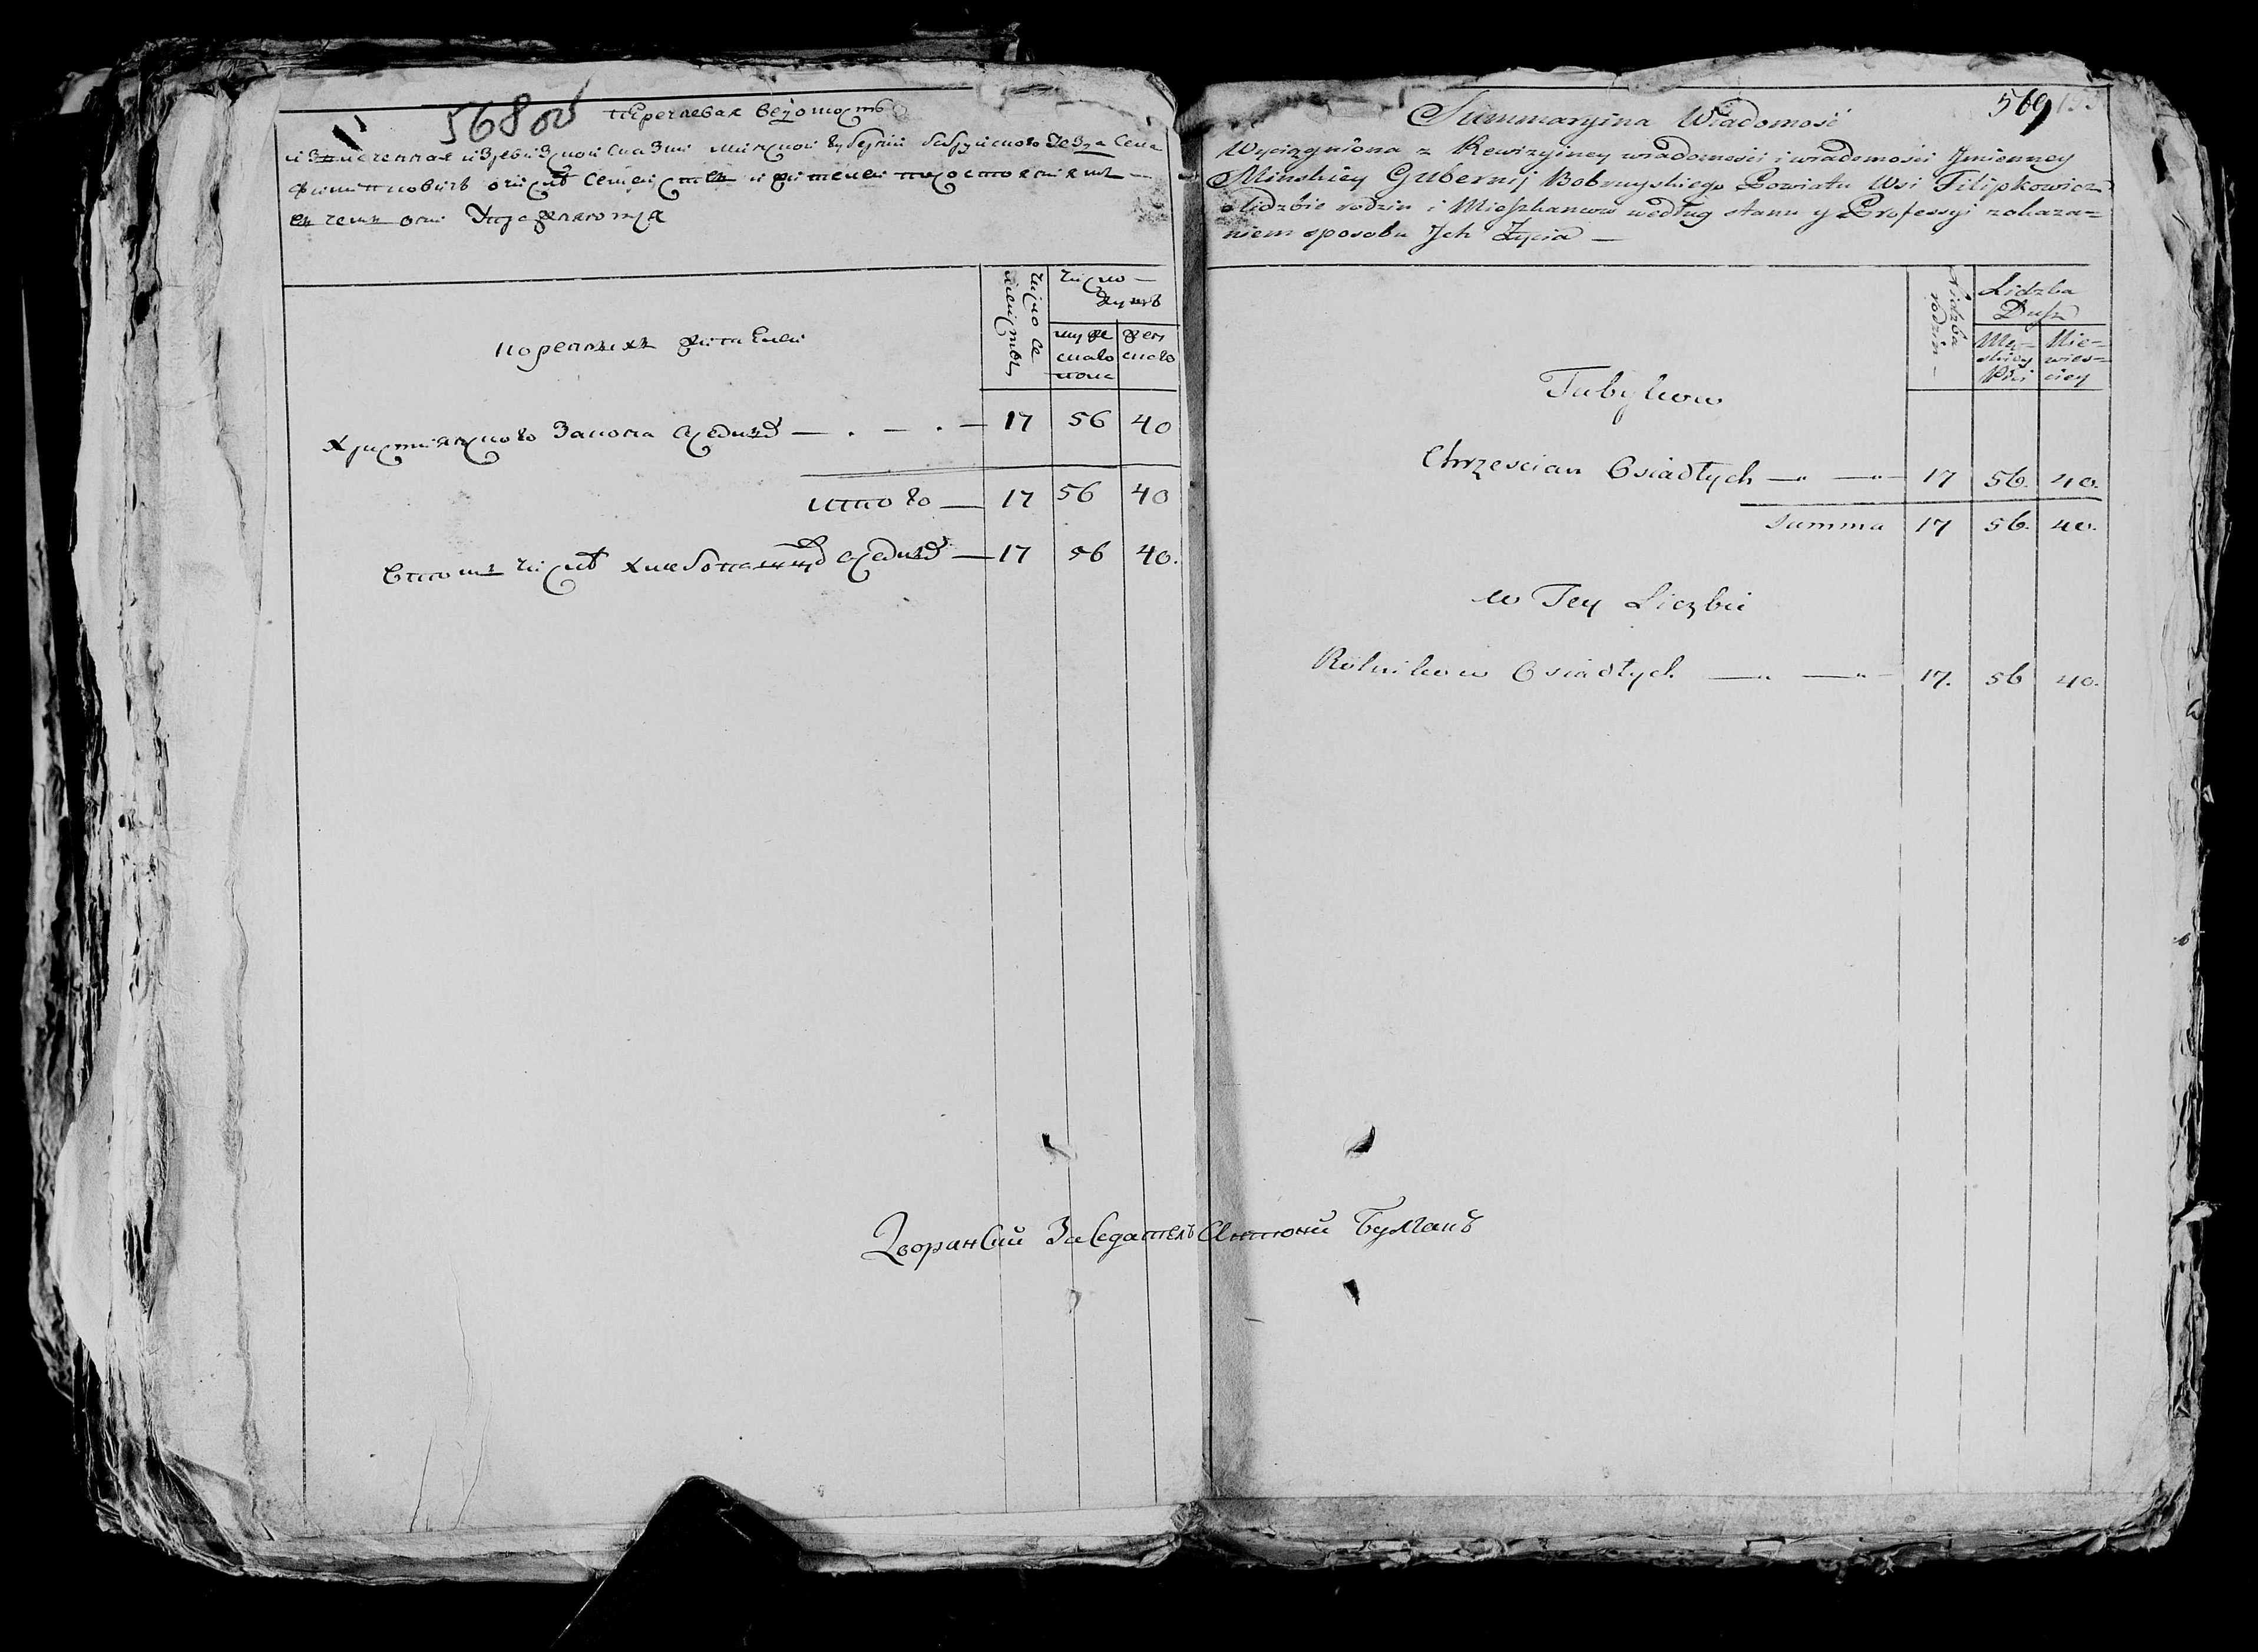 568 об
перечневая ведомость
извлеченная изревизкой сказки минской губернии бобруйского уезда села
филипповичь очисле семействъ и жителей посостояниямъ
въ чемъ они упражняются
коренныхъ жителей
число семействъ
число душъ
мужескаго пола
женскаго
Христианскаго закона оседлых — . — . — 17 56 40
итого — 17 56 40
Втомъ числе хлебопашцовъ оседлых — 17 56 40.
Дворанский Заседатель Антоний Булгакъ
569
Summaryina Wiadomość
Wyciągniona z Rewizyiney wiadomości i wiadomości Jmienney
Minskiey Gubernij Bobruyskiego Powiatu Wsi Filipkowicz
o lidzbie rodzin i Mieszkancow według stanu y Professyi zokaza=
niem sposobu Jch Życia —
Lidzba rodzin —
Lidzba Dusz
Mę=skiey Płci
Nie=wies=ciey
Tubylcow
Chrzescian Osiadłych — 17 56. 40.
Summa 17 56. 40.
w Tey Liczbie
Rolnikow Osiadłych — 17. 56 40.